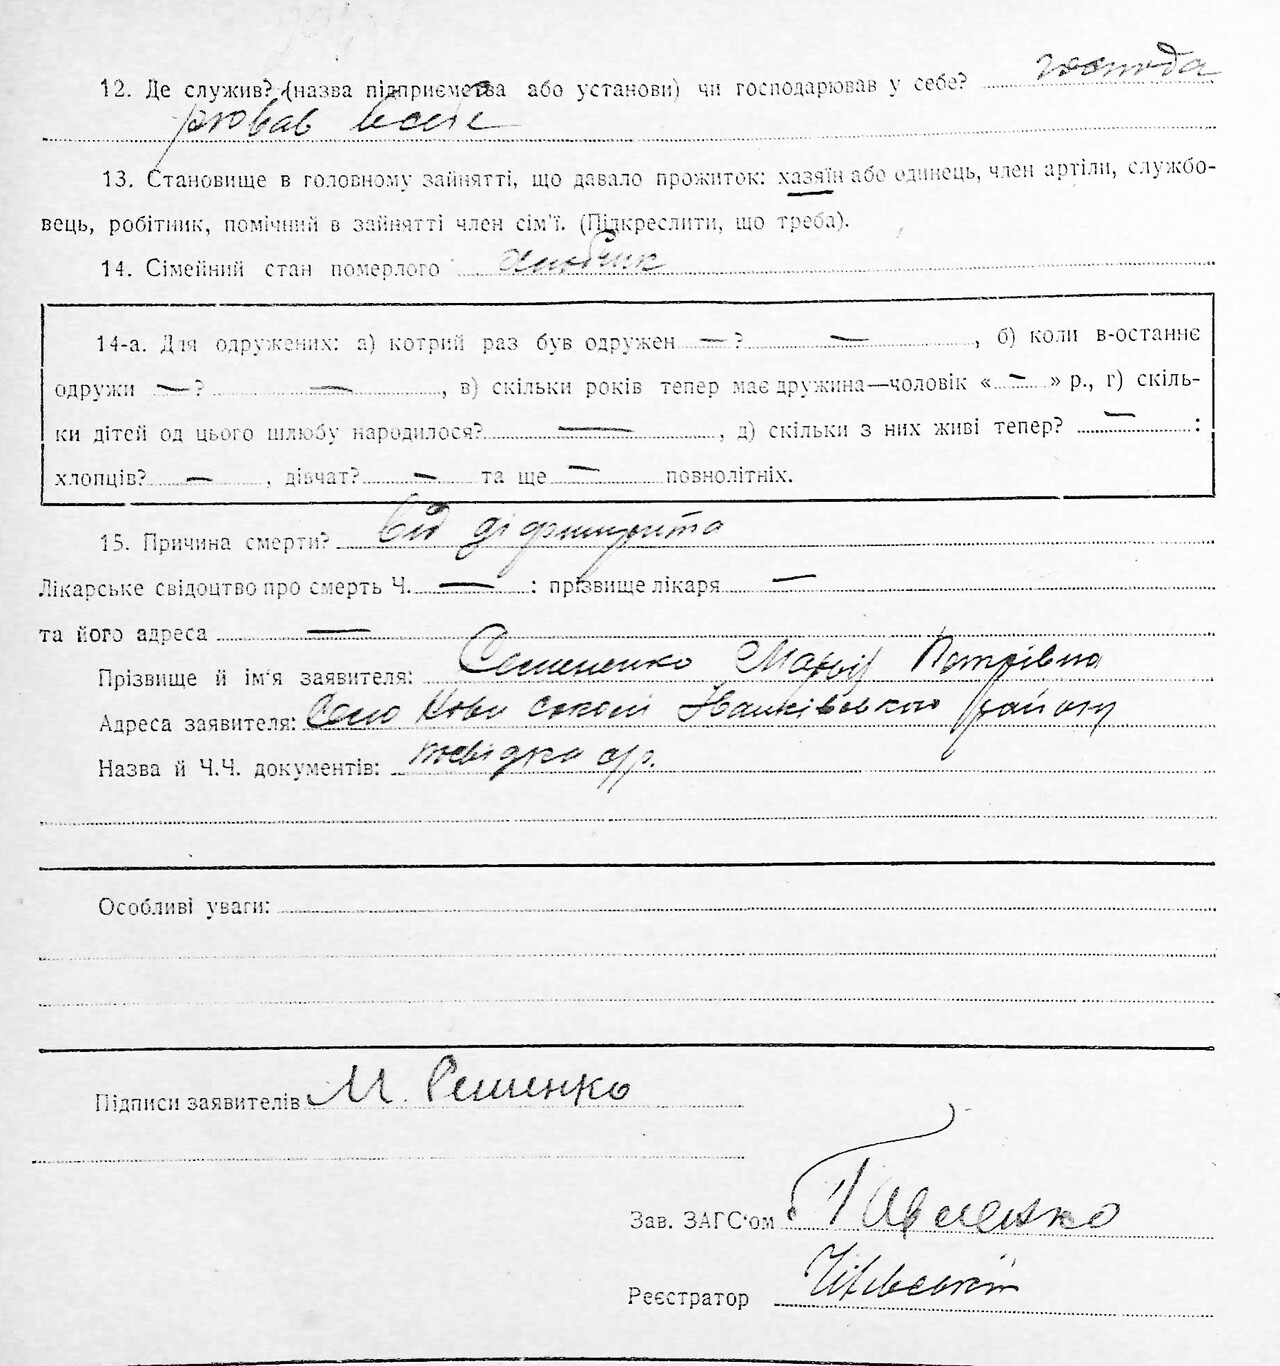 12. Де служив? (назва підприємства або установи) чи господарював у себе? господа
рював в себе
13. Становище в головному зайнятті, що давало прожиток: хазяїн або одинець, член артіли, службо-
вець, робітник, помічний в зайнятті член сім'ї. (Підкреслити, що треба).
14. Сімейний стан померлого
14-а. Для одружених: а) котрий раз був одружен —? —, б) коли в-останнє
одружи —? —, в) скільки років тепер має дружина—чоловік « — » р., г) скіль-
ки дітей од цього шлюбу народилося? —, д) скільки з них живі тепер? — :
хлопців? —, дівчат? — та ще — повнолітніх.
15. Причина смерти? від
Лікарське свідоцтво про смерть Ч. — : прізвище лікаря —
та його адреса —
Прізвище й ім'я заявителя: Семененко Марія Петрівна
Адреса заявителя: Село Нові Сокол Іванківського району
Назва й Ч.Ч. документів: посвідка с/р.
Особливі уваги:
Підписи заявителів М.
Зав. ЗАГС'ом Павленко
Реєстратор